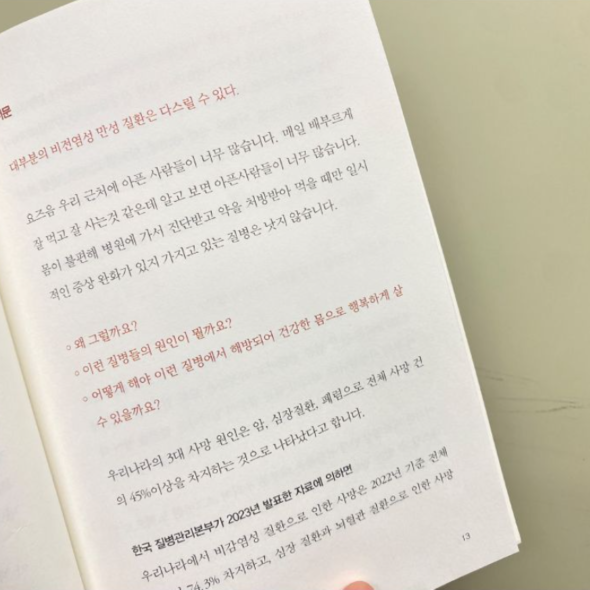 대부분의 비전염성 만성 질환은 다스릴 수 있다.
요즈음 우리 근처에 아픈 사람들이 너무 많습니다. 매일 배부르게
잘 먹고 잘 사는것 같은데 알고 보면 아픈사람들이 너무 많습니다.
몸이 불편해 병원에 가서 진단받고 약을 처방받아 먹을 때만 일시
적인 증상 완화가 있지 가지고 있는 질병은 낫지 않습니다.
○ 왜 그럴까요?
○ 이런 질병들의 원인이 뭘까요?
○ 어떻게 해야 이런 질병에서 해방되어 건강한 몸으로 행복하게 살
수 있을까요?
우리나라의 3대 사망 원인은 암, 심장질환, 폐렴으로 전체 사망 건
의 45%이상을 차지하는 것으로 나타났다고 합니다.
한국 질병관리본부가 2023년 발표한 자료에 의하면
우리나라에서 비감염성 질환으로 인한 사망은 2022년 기준 전체
74.3% 차지하고, 심장 질환과 뇌혈관 질환으로 인한 사망
13